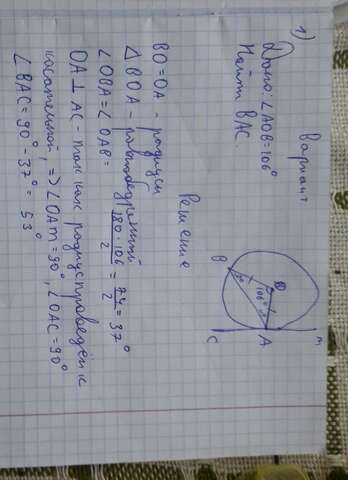 вариант
1)
Дано: ∠AOB=106°
Найти BAC.
m
O
106°
A
B
C
Решение
BO=OA - радиусы
△BOA - равнобедренный
∠OBA=∠OAB= 180-106/2 = 74/2 = 37°
OA⊥AC - так как радиус проведён к
касательной, => ∠OAm=90°, ∠OAC=90°
∠BAC=90°-37°=53°